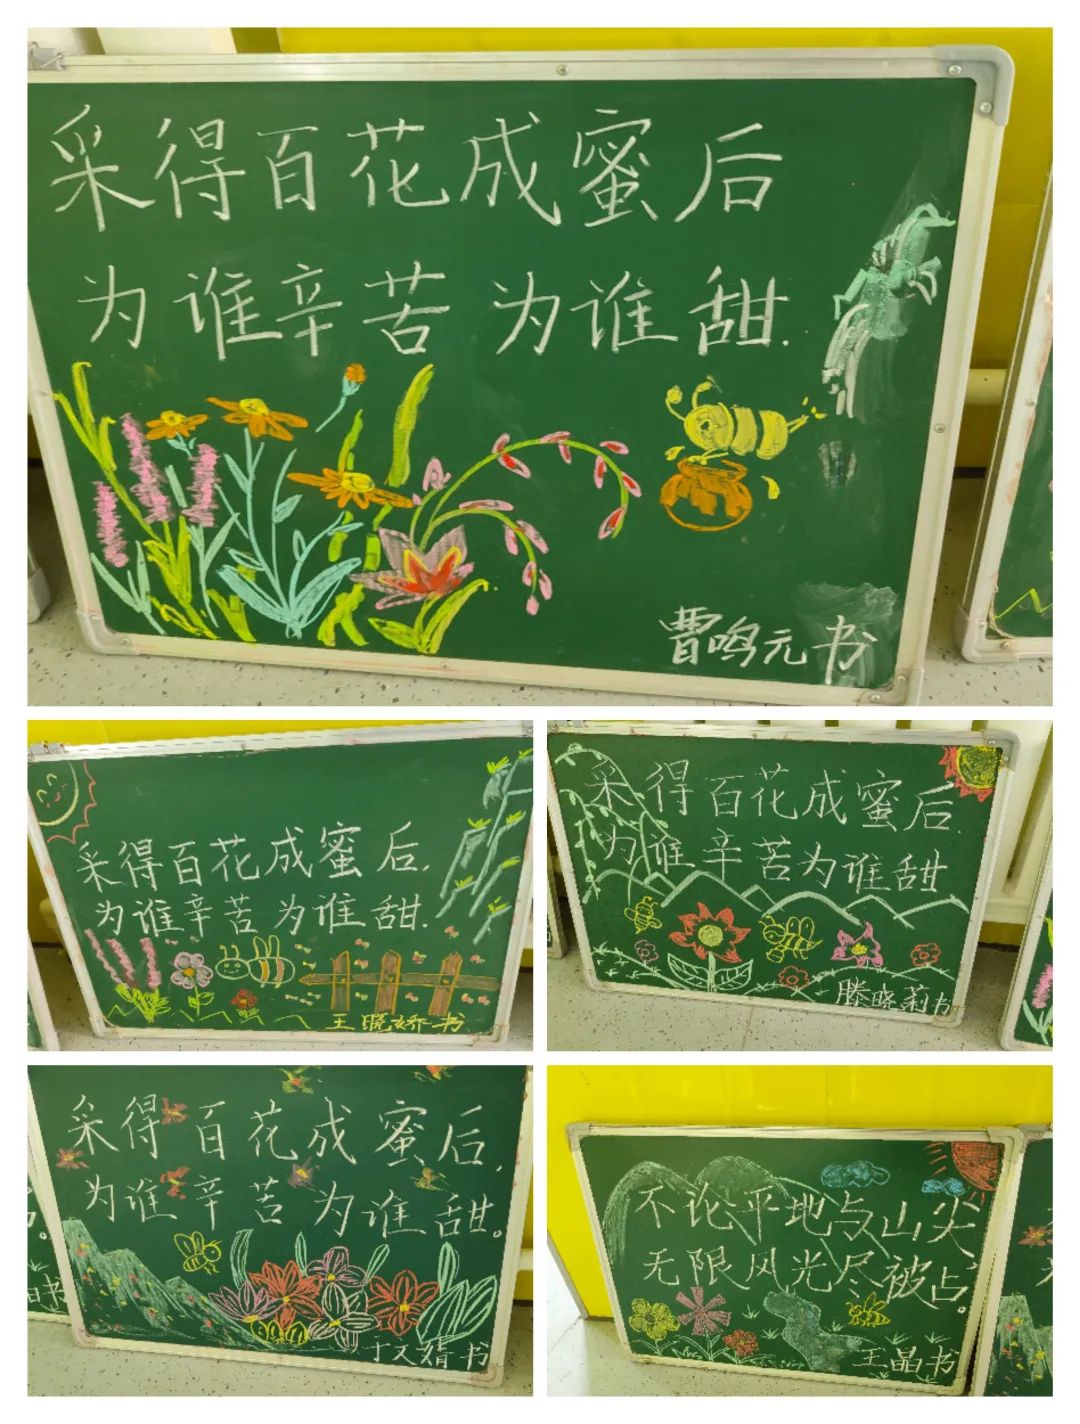 采得百花成蜜后
为谁辛苦为谁甜.
曹鸣元书
采得百花成蜜后.
为谁辛苦为谁甜.
王晓娇书
采得百花成蜜后.
为谁辛苦为谁甜
滕晓莉书
采得百花成蜜后,
为谁辛苦为谁甜。
丁文婧书
不论平地与山尖,
无限风光尽被占。
王晶书